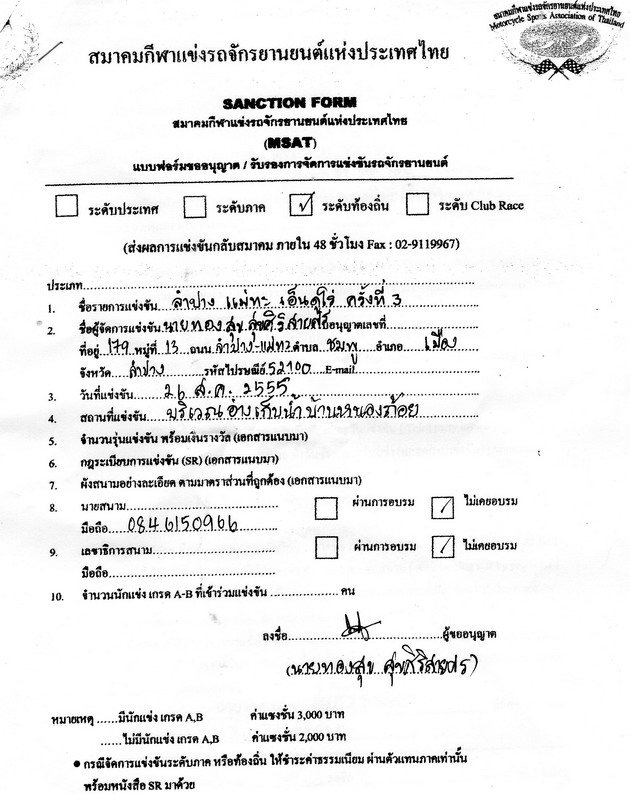 สมาคมกีฬาแข่งรถจักรยานยนต์แห่งประเทศไทย
Motorcycle Sports Association of Thailand
สมาคมกีฬาแข่งรถจักรยานยนต์แห่งประเทศไทย
SANCTION FORM
สมาคมกีฬาแข่งรถจักรยานยนต์แห่งประเทศไทย
(MSAT)
แบบฟอร์มขออนุญาต / รับรองการจัดการแข่งขันรถจักรยานยนต์
ระดับประเทศ ระดับภาค ระดับท้องถิ่น ระดับ Club Race
(ส่งผลการแข่งขันกลับสมาคม ภายใน 48 ชั่วโมง Fax : 02-9119967)
ประเภท
1. ชื่อรายการแข่งขัน ลำปาง แม่ทะ เอ็นดูโร่ ครั้งที่ 3
2. ชื่อผู้จัดการแข่งขัน นายทองสุข สุขศิริสายศร ใบอนุญาตเลขที่
ที่อยู่ 179 หมู่ที่ 13 ถนน ลำปาง-แม่ทะ ตำบล ชมพู อำเภอ เมือง
จังหวัด ลำปาง รหัสไปรษณีย์ 52100 E-mail
3. วันที่แข่งขัน 26 ส.ค. 2555
4. สถานที่แข่งขัน บริเวณอ่างเก็บน้ำบ้านหนองถ้อย
5. จำนวนรุ่นแข่งขัน พร้อมเงินรางวัล (เอกสารแนบมา)
6. กฎระเบียบการแข่งขัน (SR) (เอกสารแนบมา)
7. ผังสนามอย่างละเอียด ตามมาตราส่วนที่ถูกต้อง (เอกสารแนบมา)
8. นายสนาม ผ่านการอบรม ไม่เคยอบรม
มือถือ 0846150966
9. เลขาธิการสนาม ผ่านการอบรม ไม่เคยอบรม
มือถือ
10. จำนวนนักแข่ง เกรด A-B ที่เข้าร่วมแข่งขัน คน
ลงชื่อ ผู้ขออนุญาต
(นายทองสุข สุขศิริสายศร)
หมายเหตุ ......มีนักแข่ง เกรด A,B ค่าแซงชั่น 3,000 บาท
......ไม่มีนักแข่ง เกรด A,B ค่าแซงชั่น 2,000 บาท
● กรณีจัดการแข่งขันระดับภาค หรือท้องถิ่น ให้ชำระค่าธรรมเนียม ผ่านตัวแทนภาคเท่านั้น
พร้อมหนังสือ SR มาด้วย